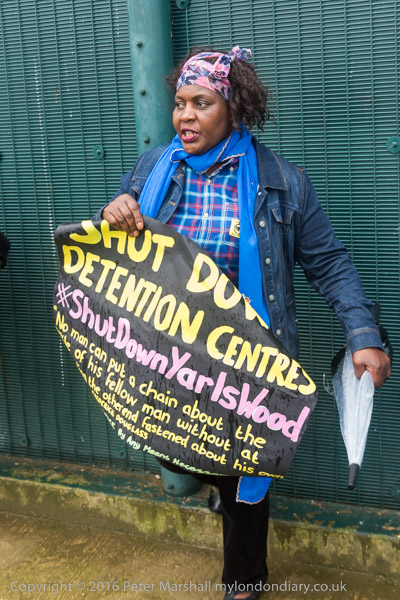 SHUT DOW
DETENTION CENTRES
#ShutDownYarlsWood
"No man can put a chain about the
of his fellow man without at
the other end fastened about his own
DOUGLASS
By Any Means
Copyright © 2016 Peter Marshall mylondondiary.co.uk